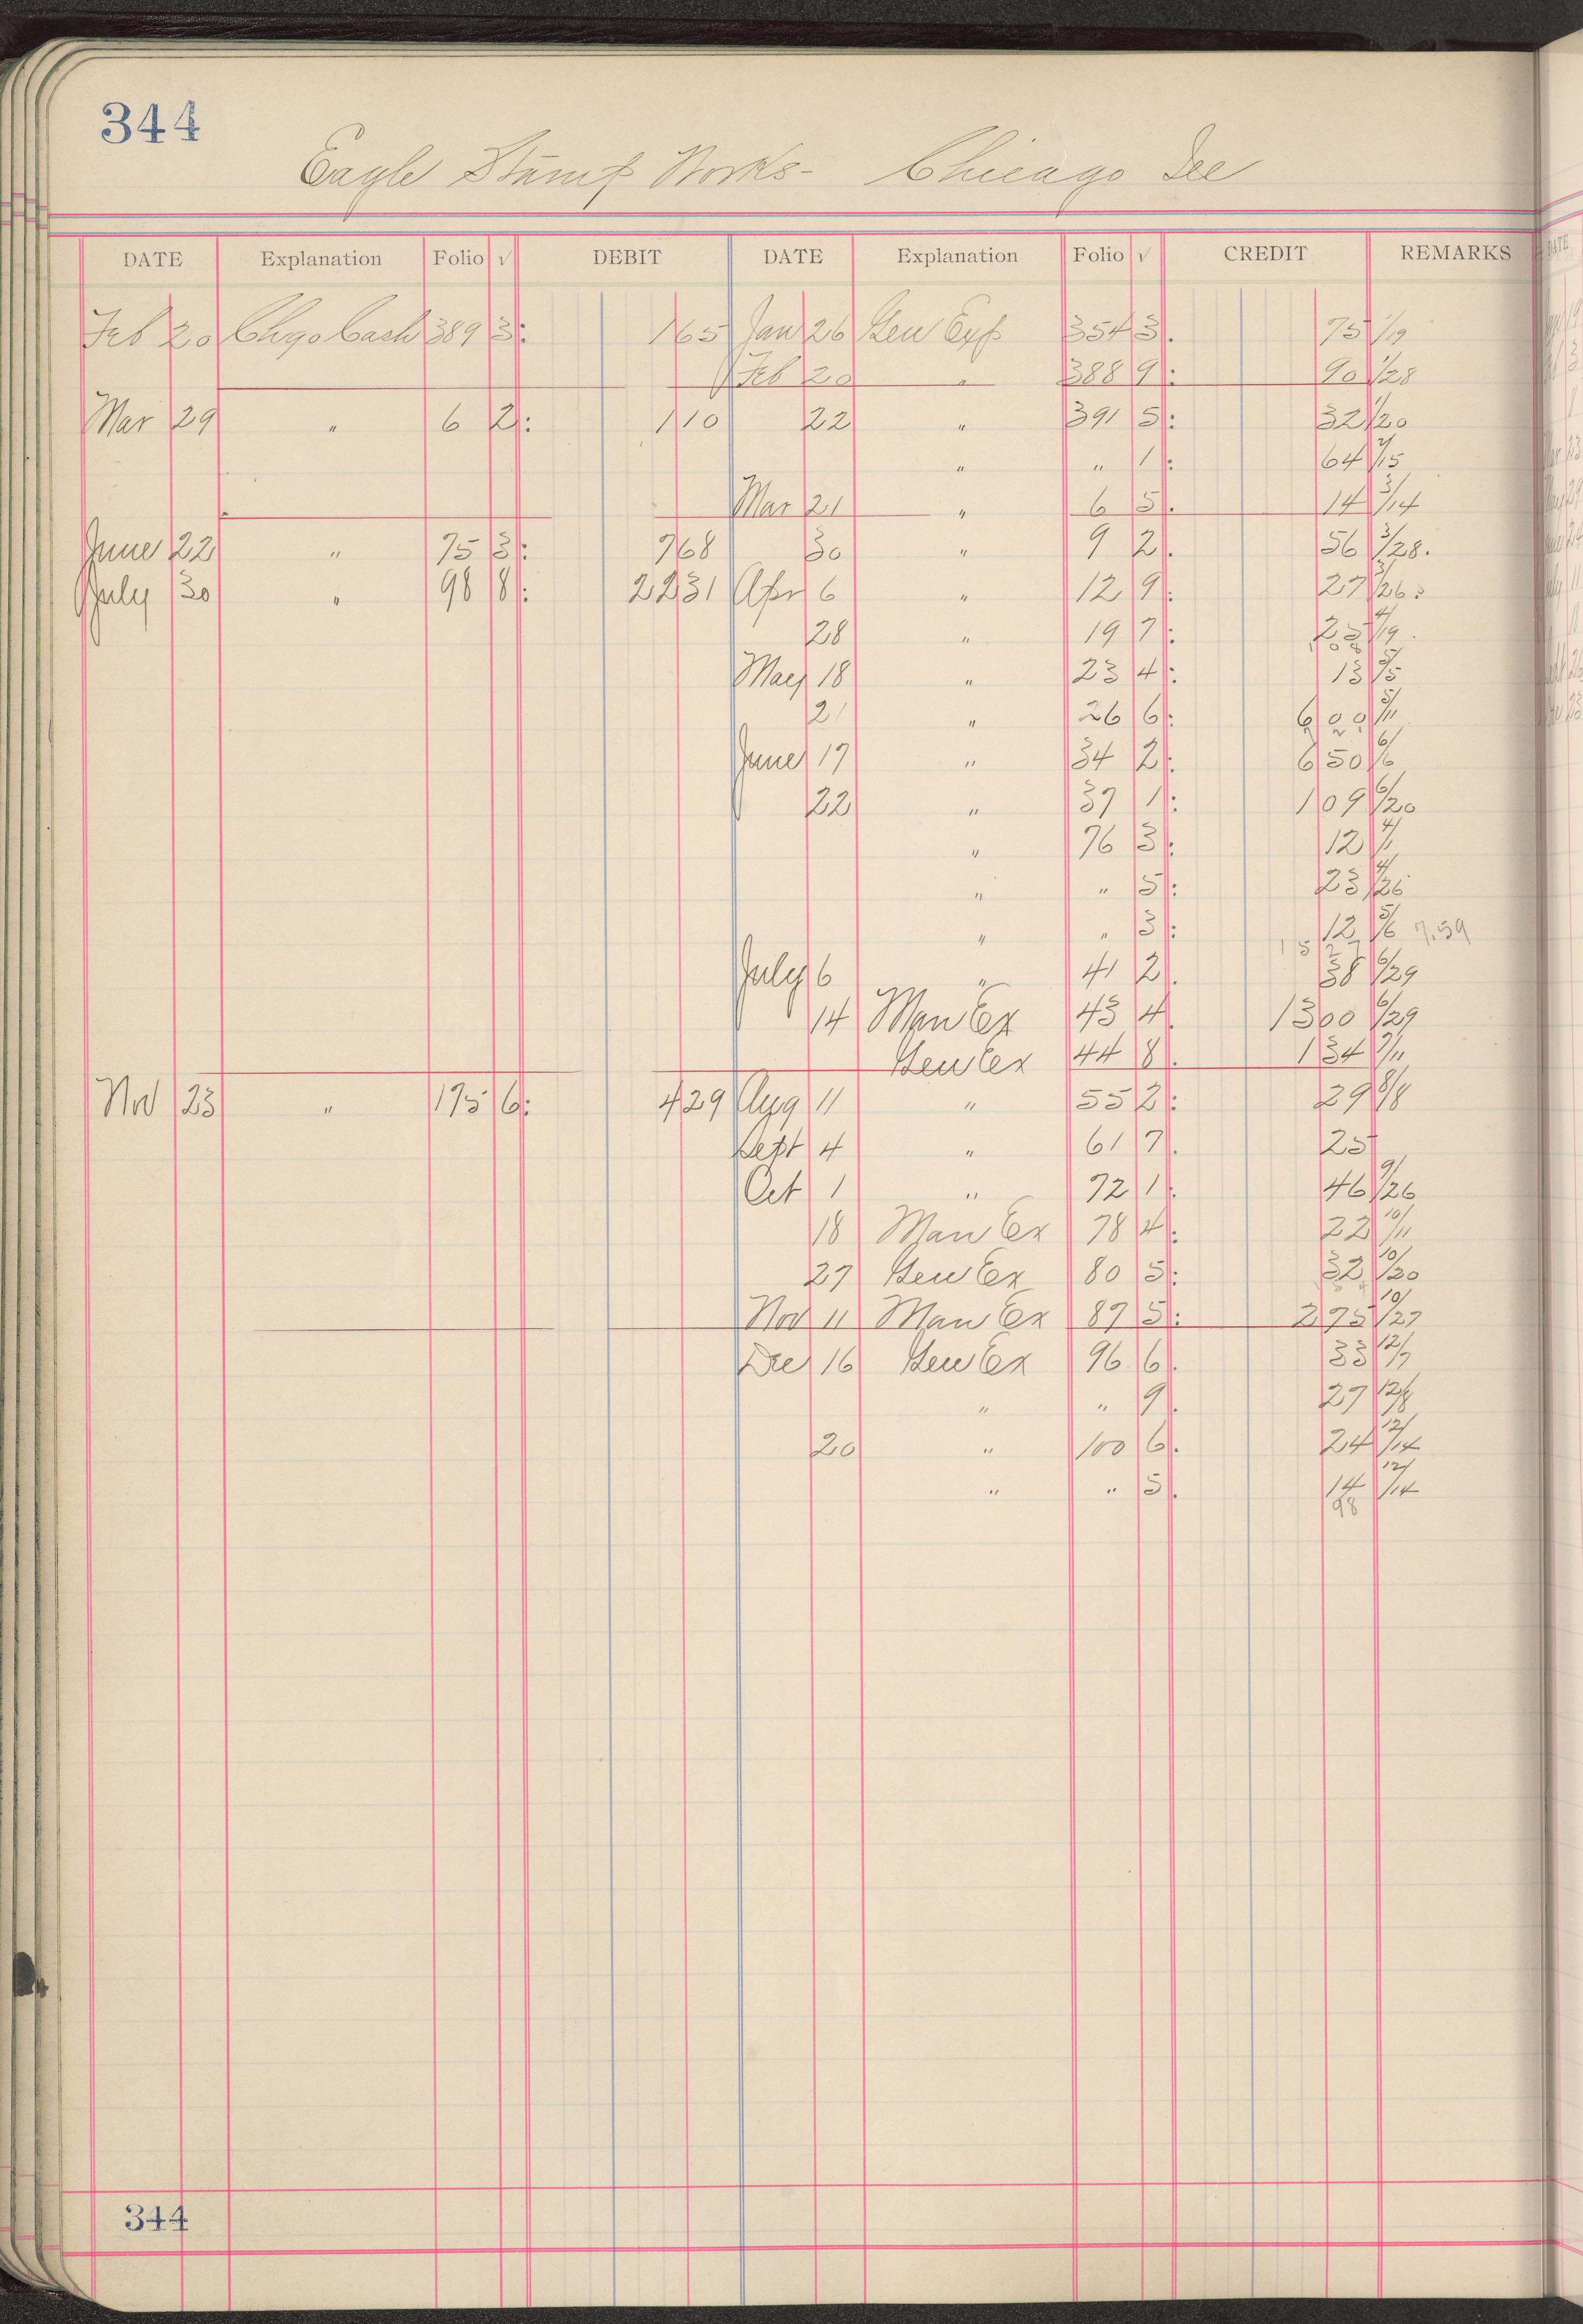 344
Eagle Stamp Works - Chicago Ill
DATE Explanation Folio √ DEBIT DATE Explanation Folio √ CREDIT REMARKS
Feb 20 Chgo Cash 389 3: 165 Jan 26 Gen Exp 354 3. 75 1/19
Feb 20 " 388 9: 90 1/28
Mar 29 " 6 2: 110 22 " 391 5: 32 1/20
" " 1: 64 2/15
Mar 21 " 6 5. 14 3/14
June 22 " 75 3: 768 30 " 9 2. 56 3/28.
July 30 " 98 8: 2231 Apr 6 " 12 9: 27 3/26:
28 " 19 7: 25 4/19.
May 18 " 23 4: 13 5/5
21 " 26 6: 600 5/11
June 17 " 34 2: 650 6/6
22 " 37 1: 109 6/20
" 76 3: 12 4/1
" " 5: 23 4/26
" " 3: 12 5/6 7.59
July 6 " 41 2. 38 6/29
14 Man Ex 43 4. 1300 6/29
Gen Ex 44 8. 134 7/11
Nov 23 " 175 6: 429 Aug 11 " 55 2: 29 8/8
Sept 4 " 61 7. 25
Oct 1 " 72 1: 46 9/26
18 Man Ex 78 4: 22 10/11
27 Gen Ex 80 5: 32 10/20
Nov 11 Man Ex 87 5: 275 10/27
Dec 16 Gen Ex 96 6. 33 12/7
" " 9. 27 12/8
20 " 100 6. 24 12/14
" " 5. 14 12/14
98
344